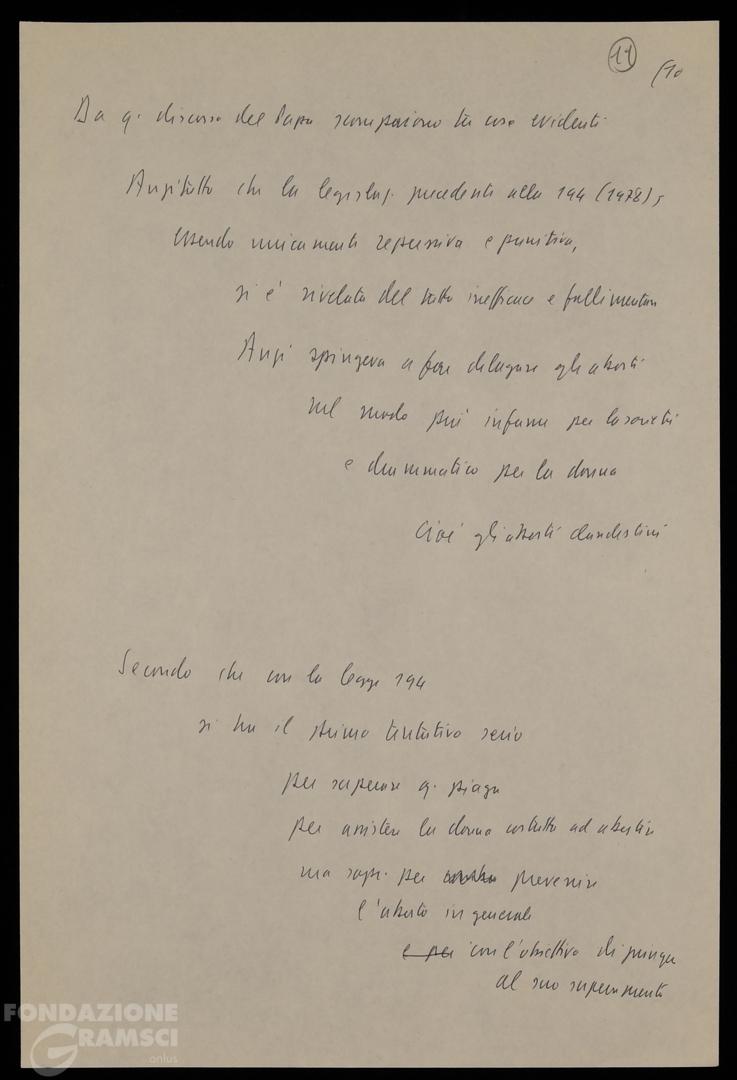 11
(10
Da q. discorso del Papa scompaiono tre cose evidenti
Anzitutto che la legislaz. precedente alla 194 (1978),
essendo unicamente repressiva e punitiva,
si è rivelata del tutto inefficace e fallimentare
Anzi spingeva a fare dilagare gli aborti
nel modo più infame per la società
e drammatico per la donna
Cioè gli aborti clandestini
Secondo che con la legge 194
si ha il primo tentativo serio
per superare q. piaga
per assistere la donna costretta ad abortire
ma sopr. per prevenire
l'aborto in generale
e per con l'obiettivo di giungere
al suo superamento
FONDAZIONE
GRAMSCI
onlus